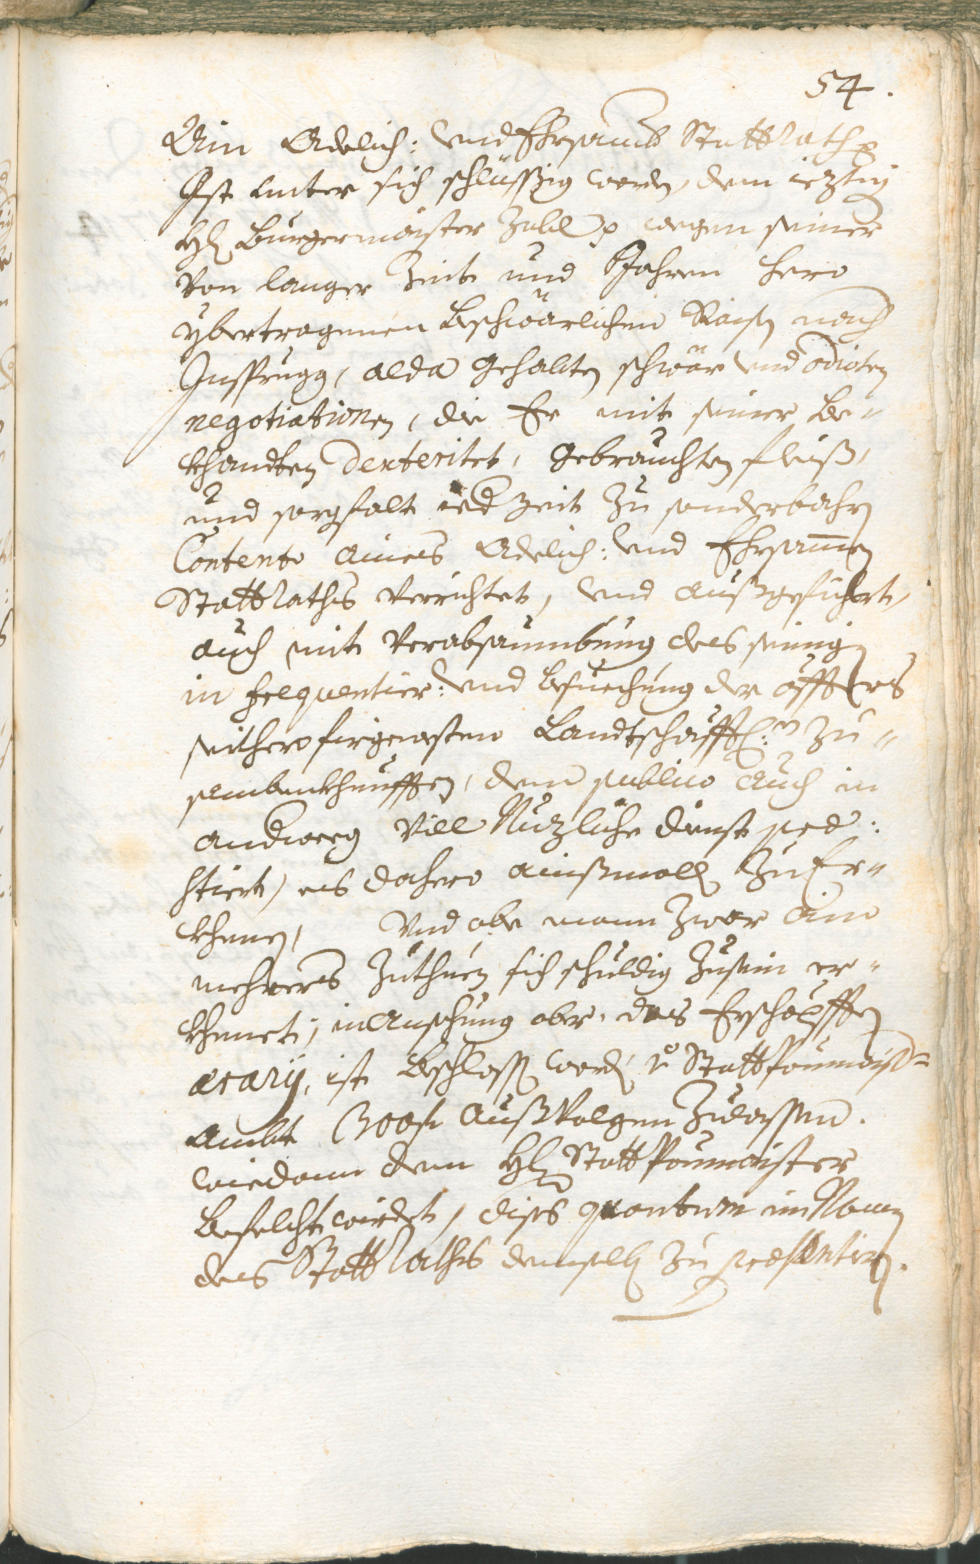 54.
Ain Adelich: und Ehrsamb Stattrath p
Ist unter sich schlüssig worden, dem ieztig
Hl Burgermaister wegen seiner
von langer Zeit und Jahren hero
ybertragenen beschwärlichen Raisen nach
Insprugg, alda gehalten schwär und odiosen
negotiationen, die Er mit seiner be-
khandten Dexteritet, gebrauchten fleiß,
und sorgfalt iedzeit zu sonderbahren
Contento aines Adelich: und Ehrsammen
Stattraths verrichtet, und außgeführt,
auch mit verabsaumbung des seinigen
in frequentier: und besuechung der öffters
seithero fürgewesten Landtschäfftl: zu-
samenkhunfften, dem publico auch in
andweeg vill Nuzliche dienst præ-
stiert, als dahero ainßmalls zu Er-
khenen, Und obe mann zwar ein
mehrers zuthuen sich schuldig zusein er-
khenet, in Ansehung aber des Erschöpfften
ærarÿ, ist beschlossen worden, von Stattpaumaister-
ambt 300 fl außvolgen zulassen.
wiedann dem Hl Stattpaumaister
befelcht wirdet, dises quantum im Namen
des Stattraths demselben zu præsentiren.